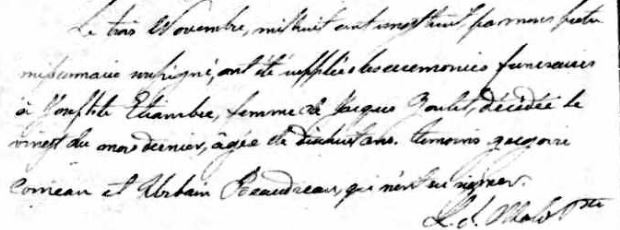 Le trois Novembre, mil huit cent vingt huit, par nous prêtre
missionnaire soussigné, ont été suppliées les ceremonies funeraires
à Josephte Etiambre, femme de Jacques Boulet, décédée le
vingt du mois dernier, âgée de dixhuit ans. temoins gregoire
Comeau et Urbain Beaudreau, qui n'ont su signer.
L. S. Malo Ptre